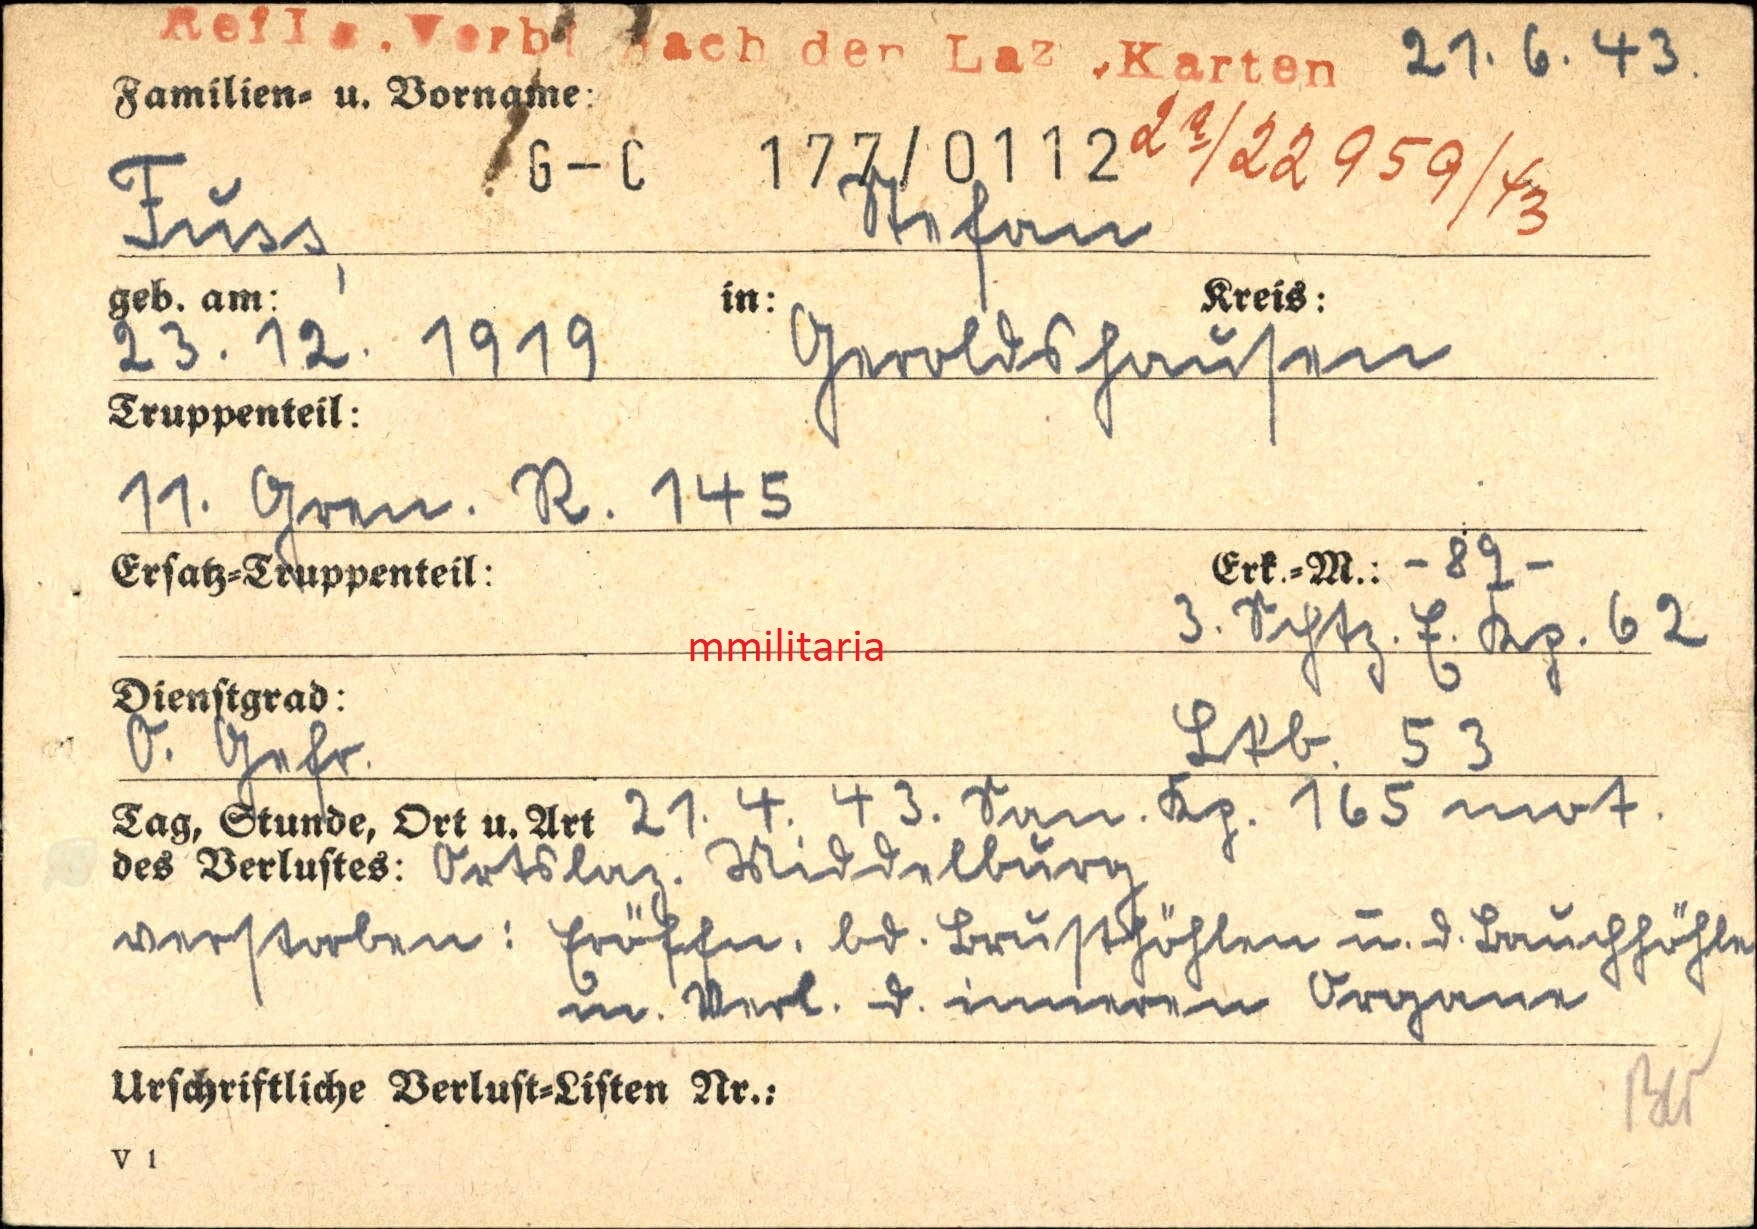 nach den Laz.Karten 21. 6. 43.
Familien- u. Vorname:
G-C 177/0112 2a/22959/43
Fuss, Stefan
geb. am: in: Kreis:
23. 12. 1919 Geroldshausen
Truppenteil:
11. Gren. R. 145
Ersatz-Truppenteil: Erk.-M.: -89-
3. Schtz. E. Kp. 62
mmilitaria
Dienstgrad:
O. Gefr. Lkb. 53
Tag, Stunde, Ort u. Art 21. 4. 43. San. Kp. 165 mot.
des Verlustes: Ortslaz. Middelburg
verstorben: Eröffn. bd. Brusthöhlen u. d. Bauchhöhle
m. Verl. d. inneren Organe
Urschriftliche Verlust-Listen Nr.:
V 1